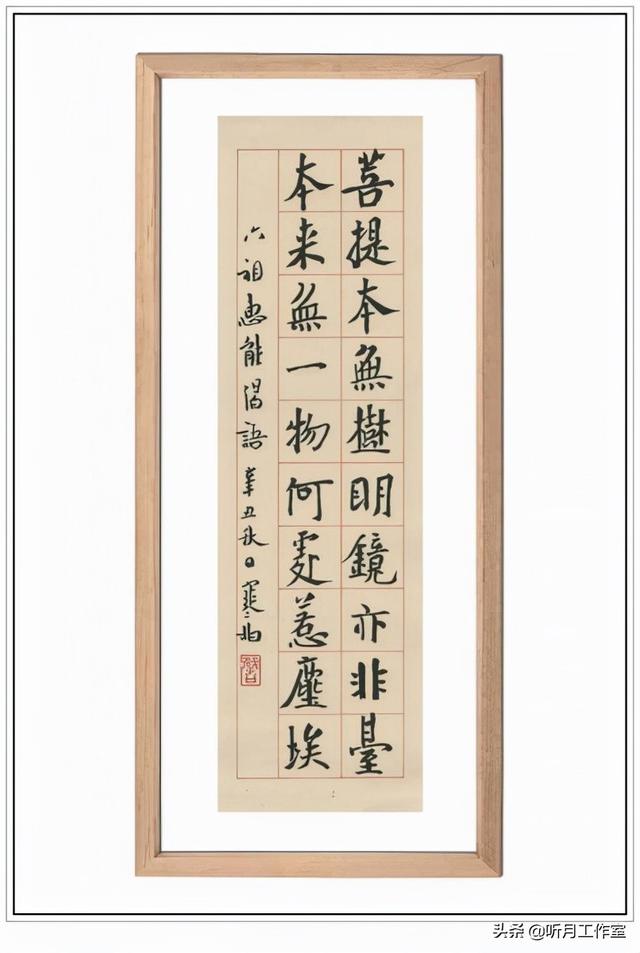 菩提本無樹明鏡亦非臺
本来無一物何處惹塵埃
六祖惠能偈語 辛丑秋日
头条 @听月工作室